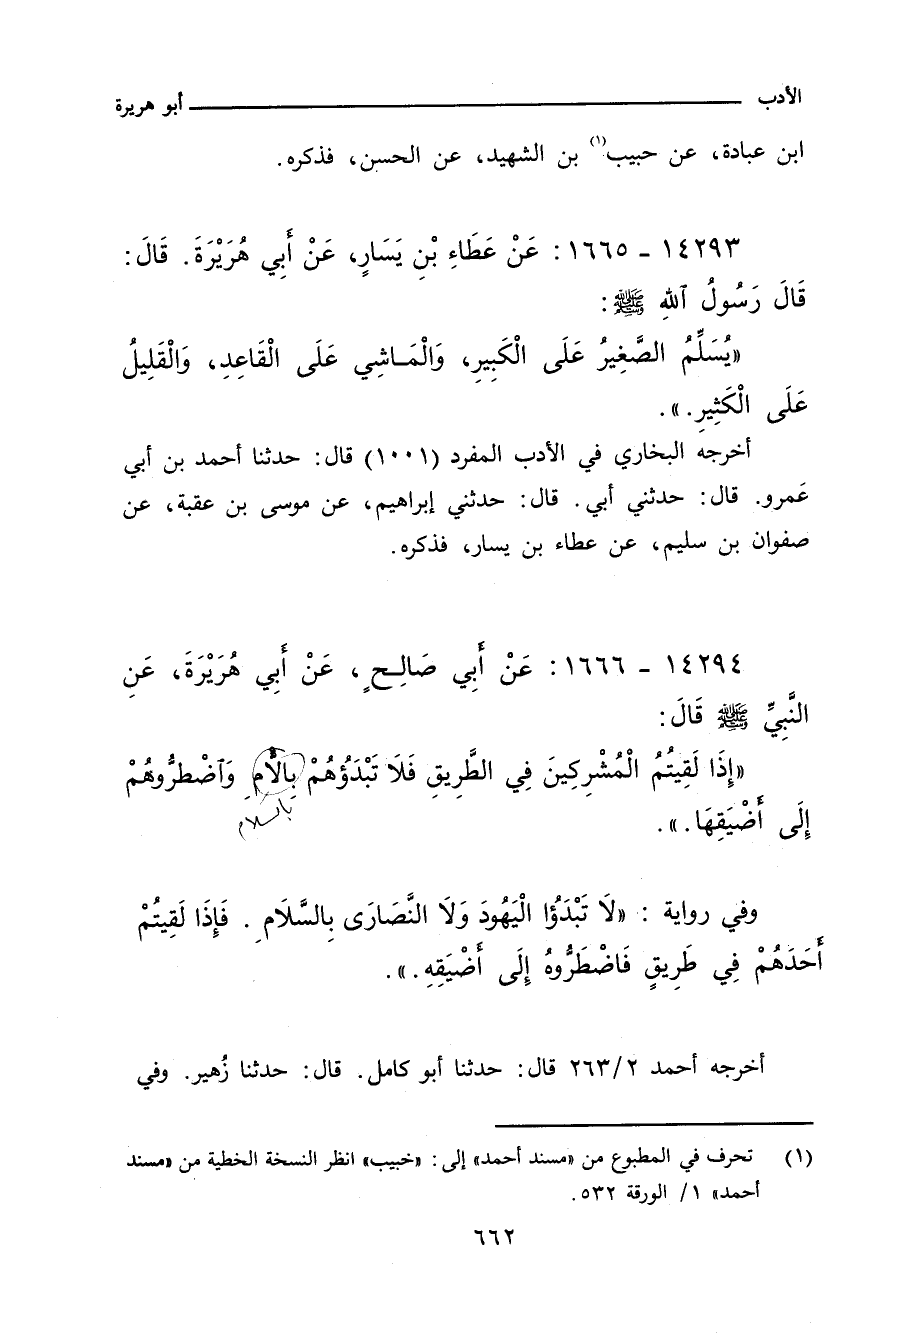 الأدب ــــــــــــ أبو هريرة
ابن عبادة، عن حبيب(١) بن الشهيد، عن الحسن، فذكره.
١٤٢٩٣ - ١٦٦٥ : عَنْ عَطَاءِ بْنِ يَسَارٍ، عَنْ أَبِي هُرَيْرَةَ. قَالَ:
قَالَ رَسُولُ ٱللهِ ﷺ:
«يُسَلِّمُ الصَّغِيرُ عَلَى الْكَبِيرِ، وَالْمَاشِي عَلَى الْقَاعِدِ، وَالْقَلِيلُ
عَلَى الْكَثِيرِ.».
أخرجه البخاري في الأدب المفرد (١٠٠١) قال: حدثنا أحمد بن أبي
عَمرو. قال: حدثني أبي. قال: حدثني إبراهيم، عن موسى بن عقبة، عن
صفوان بن سليم، عن عطاء بن يسار، فذكره.
١٤٢٩٤ - ١٦٦٦ : عَنْ أَبِي صَالِحٍ، عَنْ أَبِي هُرَيْرَةَ، عَنِ
النَّبِيِّ ﷺ قَالَ:
«إِذَا لَقِيتُمُ الْمُشْرِكِينَ فِي الطَّرِيقِ فَلَا تَبْدَؤُهُمْ بِالُّامِ وَٱضْطَرُّوهُمْ
بالسلام
إِلَى أَضْيَقِهَا.».
وفي رواية : «لَا تَبْدَؤُا الْيَهُودَ وَلَا النَّصَارَى بِالسَّلَامِ . فَإِذَا لَقِيتُمْ
أَحَدَهُمْ فِي طَرِيقٍ فَاضْطَرُّوهُ إِلَى أَضْيَقِهِ.».
أخرجه أحمد ٢٦٣/٢ قال: حدثنا أبو كامل. قال: حدثنا زُهير. وفي
(١) تحرف في المطبوع من «مسند أحمد» إلى: «خبيب» انظر النسخة الخطية من «مسند
أحمد» ١/ الورقة ٥٣٢.
٦٦٢